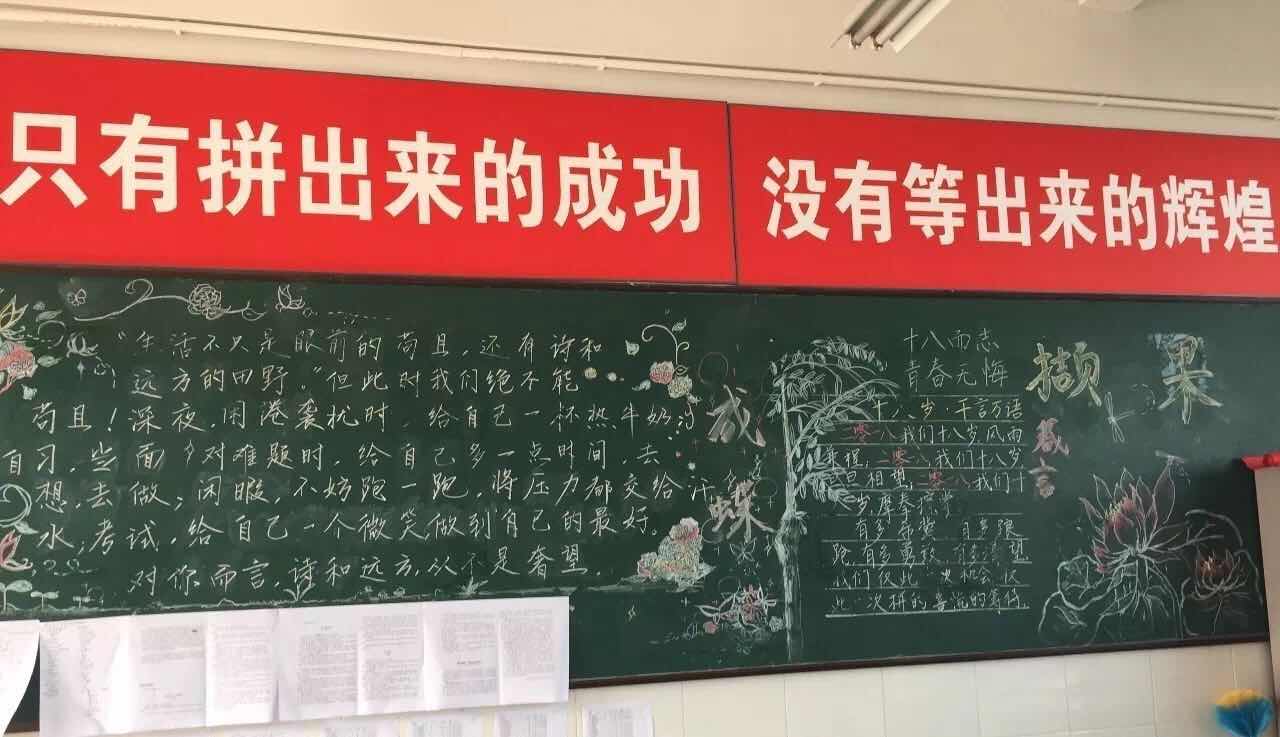 只有拼出来的成功
没有等出来的辉煌
"生活不只是眼前的苟且,还有诗和
远方的田野."但此时我们绝不能
苟且!深夜,困倦袭扰时,给自己一杯热牛奶;
自习,当面对难题时,给自己多一点时间,去
想,去做;闲暇,不妨跑一跑,将压力都交给汗
水;考试,给自己一个微笑,做到自己的最好。
对你而言,诗和远方,从不是奢望.
成
蝶
十八而志
青春无悔
十八岁·千言万语
二零一八我们十八岁风雨
兼程,二零一八我们十八岁
相望,二零一八我们十
八岁,摩拳擦掌
有多
有多勇敢
我们仅此一次机会仅
此一次拼的
撷果
箴言